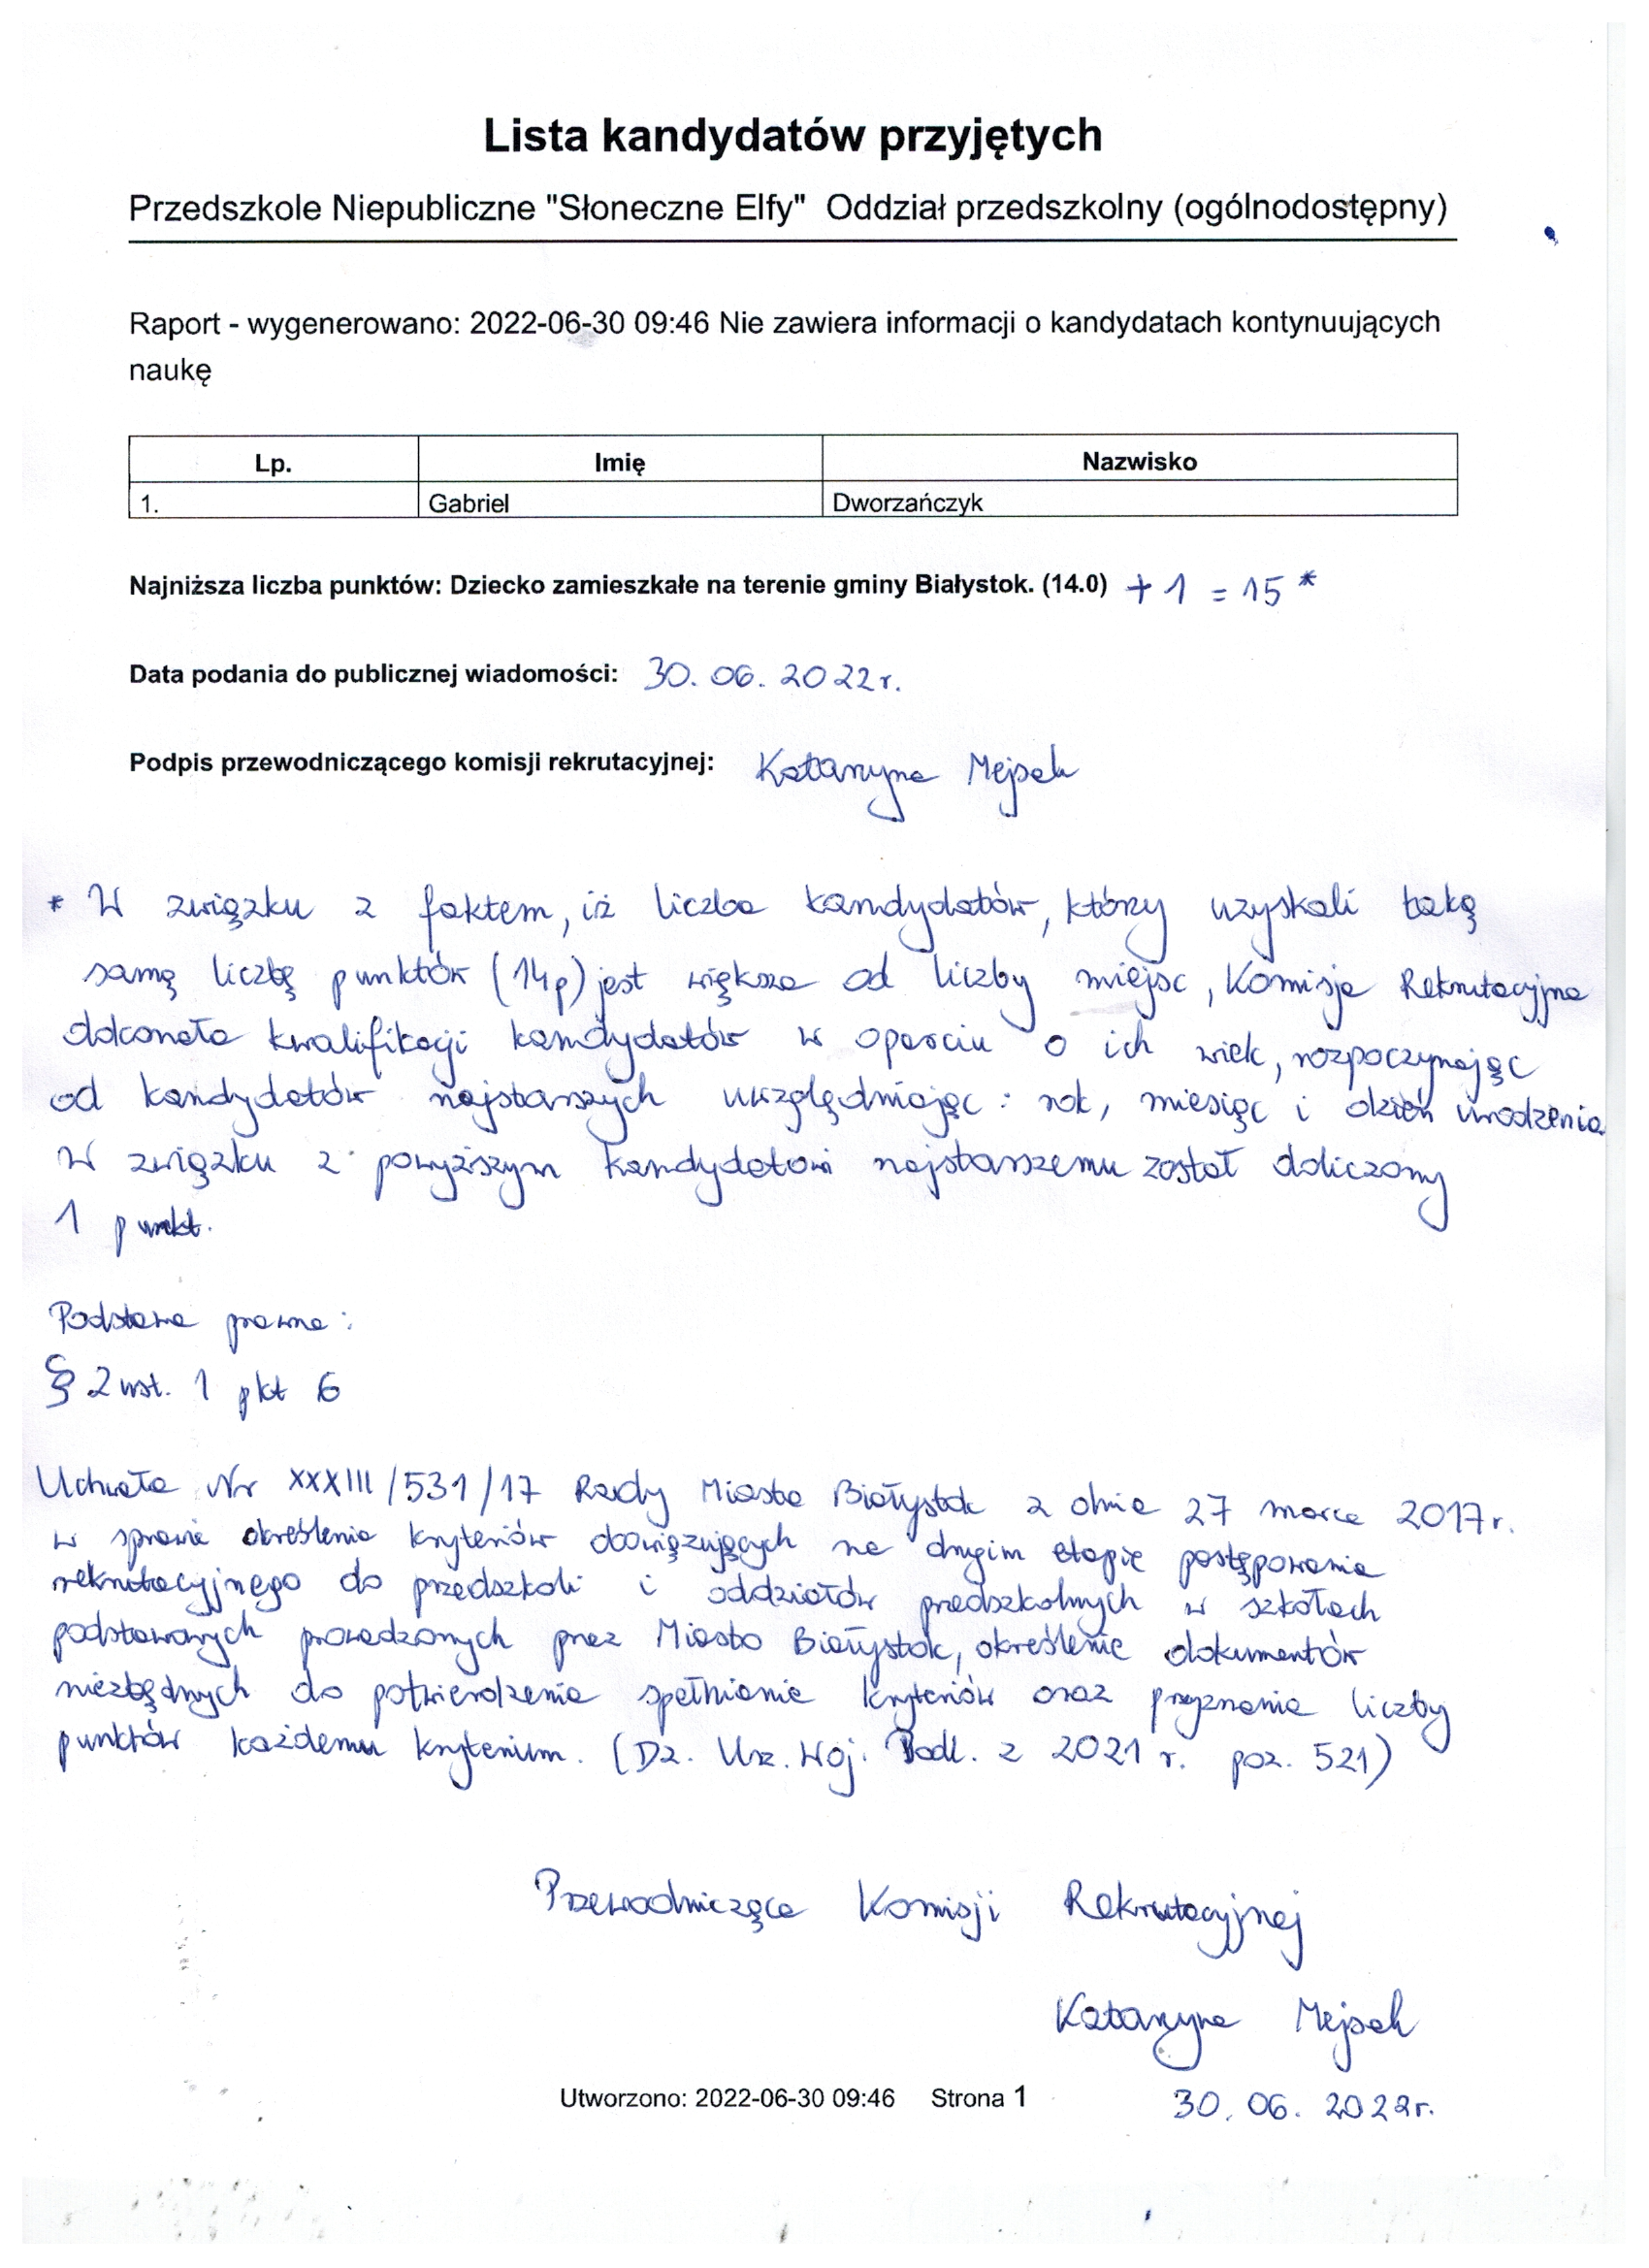 Lista kandydatów przyjętych
Przedszkole Niepubliczne "Słoneczne Elfy" Oddział przedszkolny (ogólnodostępny)
Raport - wygenerowano: 2022-06-30 09:46 Nie zawiera informacji o kandydatach kontynuujących
naukę
Lp. Imię Nazwisko
1. Gabriel Dworzańczyk
Najniższa liczba punktów: Dziecko zamieszkałe na terenie gminy Białystok. (14.0) + 1 = 15 *
Data podania do publicznej wiadomości: 30. 06. 2022 r.
Podpis przewodniczącego komisji rekrutacyjnej: Katarzyna Mejsak
* W związku z faktem, iż liczba kandydatów, którzy uzyskali taką
samą liczbę punktów (14p) jest większa od liczby miejsc, Komisja Rekrutacyjna
dokonała kwalifikacji kandydatów w oparciu o ich wiek, rozpoczynając
od kandydatów najstarszych uwzględniając: rok, miesiąc i dzień urodzenia
W związku z powyższym kandydatowi najstarszemu został doliczony
1 punkt.
Podstawa prawna:
§ 2 ust. 1 pkt 6
Uchwała Nr XXXIII/531/17 Rady Miasta Białystok z dnia 27 marca 2017 r.
w sprawie określenia kryteriów obowiązujących na drugim etapie postępowania
rekrutacyjnego do przedszkoli i oddziałów przedszkolnych w szkołach
podstawowych prowadzonych przez Miasto Białystok, określenie dokumentów
niezbędnych do potwierdzenia spełniania kryteriów oraz przyznania liczby
punktów każdemu kryterium. (Dz. Urz. Woj. Podl. z 2021 r. poz. 521)
Przewodnicząca Komisji Rekrutacyjnej
Katarzyna Mejsak
Utworzono: 2022-06-30 09:46 Strona 1
30. 06. 2022 r.